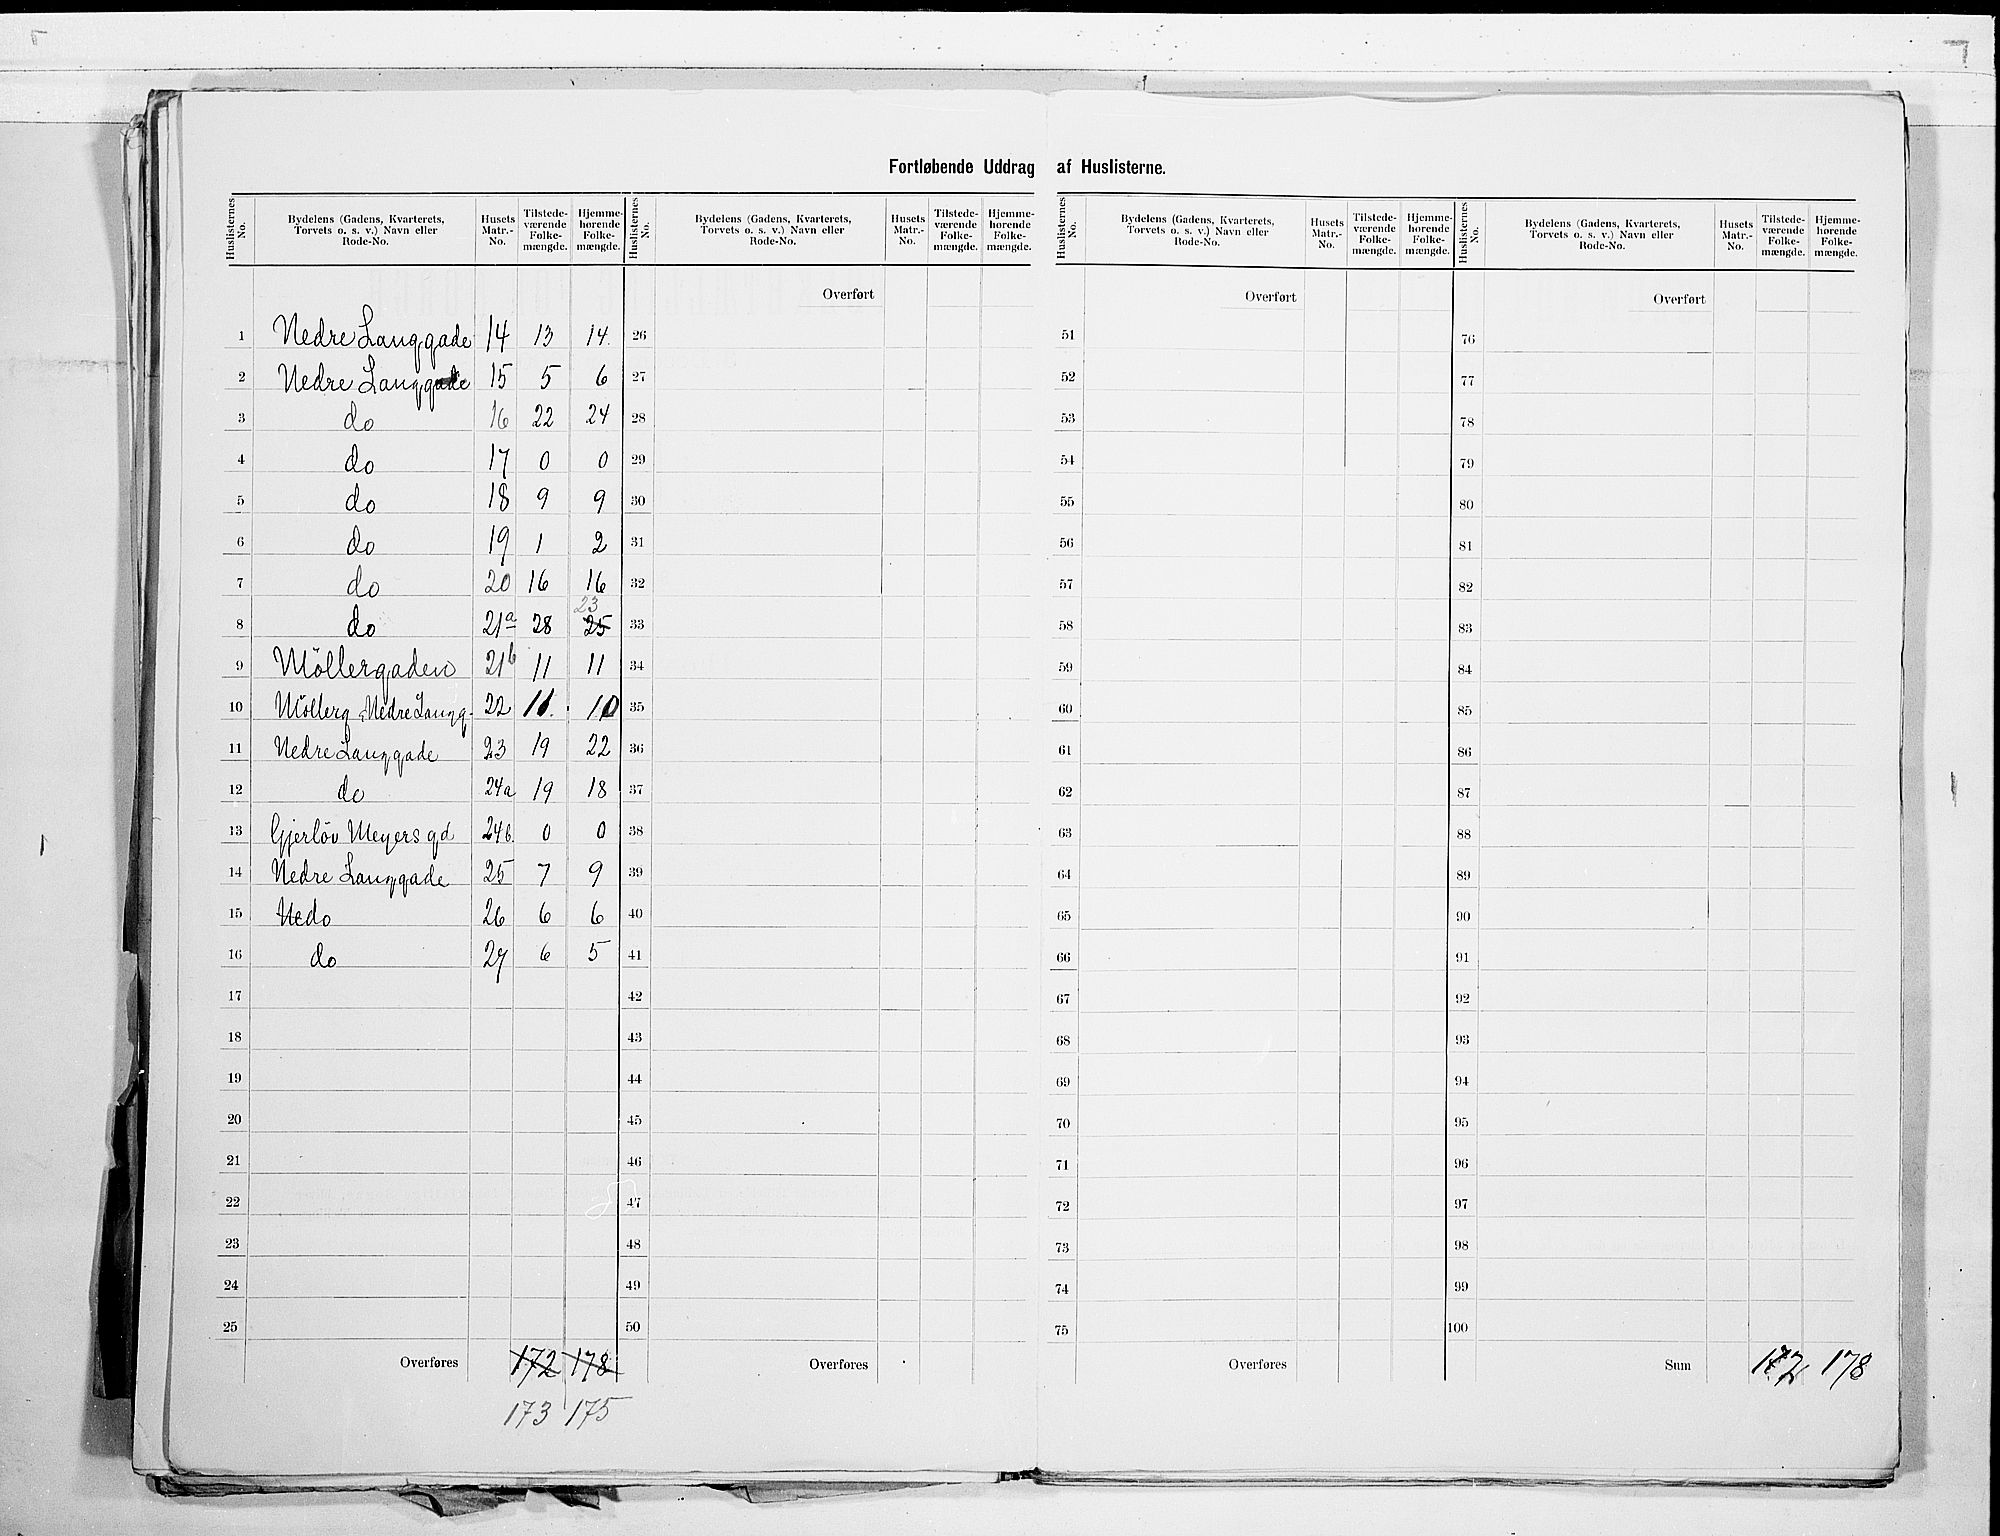 Fortløbende Uddrag af Huslisterne.
Huslisternes No. | Bydelens (Gadens, Kvarterets, Torvets o. s. v.) Navn eller Rode-No. | Husets Matr.-No. | Tilstedeværende Folkemængde. | Hjemmehørende Folkemængde. | Huslisternes No. | Bydelens (Gadens, Kvarterets, Torvets o. s. v.) Navn eller Rode-No. | Husets Matr.-No. | Tilstedeværende Folkemængde. | Hjemmehørende Folkemængde. | Huslisternes No. | Bydelens (Gadens, Kvarterets, Torvets o. s. v.) Navn eller Rode-No. | Husets Matr.-No. | Tilstedeværende Folkemængde. | Hjemmehørende Folkemængde. | Huslisternes No. | Bydelens (Gadens, Kvarterets, Torvets o. s. v.) Navn eller Rode-No. | Husets Matr.-No. | Tilstedeværende Folkemængde. | Hjemmehørende Folkemængde.
Overført Overført Overført
1 Nedre Langgade 14 13 14. 26 51 76
2 Nedre Langgade 15 5 6 27 52 77
3 do 16 22 24 28 53 78
4 do 17 0 0 29 54 79
5 do 18 9 9 30 55 80
6 do 19 1 2 31 56 81
7 do 20 16 16 32 57 82
23
8 do 21a 28 25 33 58 83
9 Möllergaden 21b 11 11 34 59 84
10 Möllerg. Nedre Langg. 22 11. 10 35 60 85
11 Nedre Langgade 23 19 22 36 61 86
12 do 24a 19 18 37 62 87
13 Gjerlöv Meyers gd 24b. 0 0 38 63 88
14 Nedre Langgade 25 7 9 39 64 89
15 Nedo 26 6 6 40 65 90
16 do 27 6 5 41 66 91
17 42 67 92
18 43 68 93
19 44 69 94
20 45 70 95
21 46 71 96
22 47 72 97
23 48 73 98
24 49 74 99
25 50 75 100
Overføres 172 178 Overføres Overføres Sum 172 178
173 175